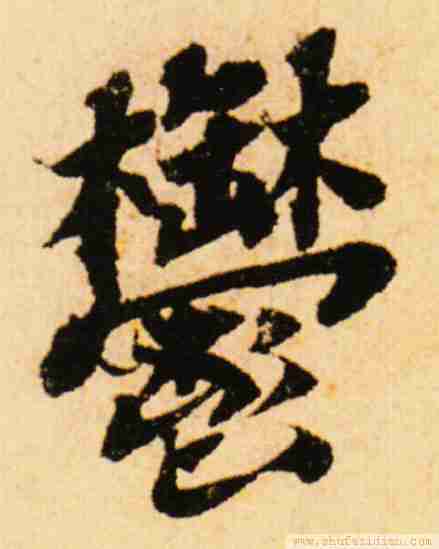 鬱
www.shufazidian.com